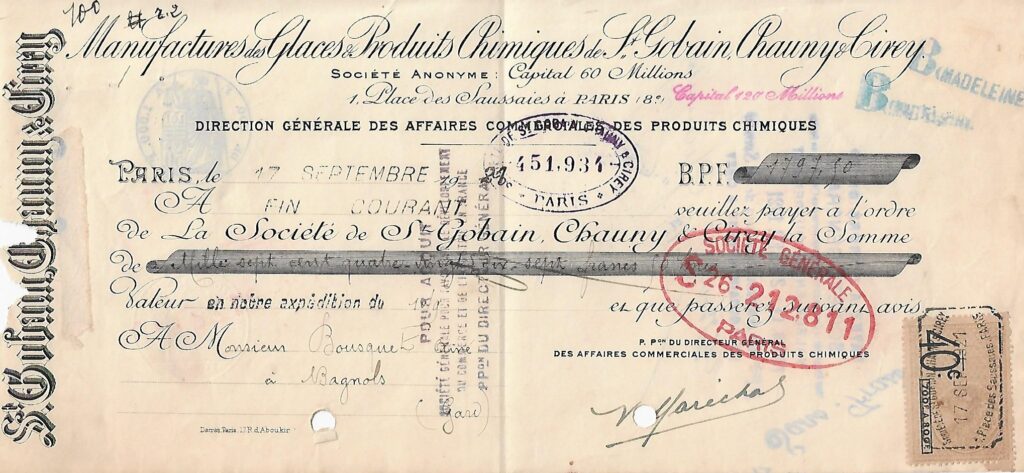 100
# 2.2
Manufactures des Glaces & Produits Chimiques de St. Gobain, Chauny & Cirey.
Société Anonyme: Capital 60 Millions
1, Place des Saussaies à PARIS (8e) Capital 120 Millions
B. MADELEINE
DIRECTION GÉNÉRALE DES AFFAIRES COMMERCIALES DES PRODUITS CHIMIQUES
DE ST GOBAIN, CHAUNY & CIREY
451,934
PARIS
PARIS, le 17 SEPTEMBRE 19
B.P.F. 1797,50
A FIN COURANT veuillez payer à l'ordre
de La Société de St Gobain, Chauny & Cirey la Somme
de Mille sept cent quatre vingt dix sept francs
Valeur en notre expédition du et que passerez suivant avis.
A Monsieur Bousquet
à Bagnols
(Gard)
P. Pon DU DIRECTEUR GÉNÉRAL
DES AFFAIRES COMMERCIALES DES PRODUITS CHIMIQUES
V Maréchal
SOCIÉTÉ GÉNÉRALE
26-212811
PARIS
POUR AVAL
SOCIÉTÉ GÉNÉRALE
DU COMMERCE ET DE L'INDUSTRIE EN FRANCE
PPon DU DIRECTEUR GÉNÉRAL
St. Gobain, Chauny & Cirey
40c
17 SEP
Place des Saussaies, PARIS
Paris, 17 R. d'Aboukir